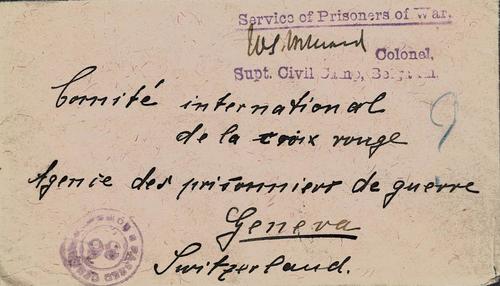 Service of Prisoners of War.
Colonel,
Supt. Civil Camp, Belgaum.
Comité international
de la croix rouge
Agence des prisonniers de guerre
Geneva
Switzerland.